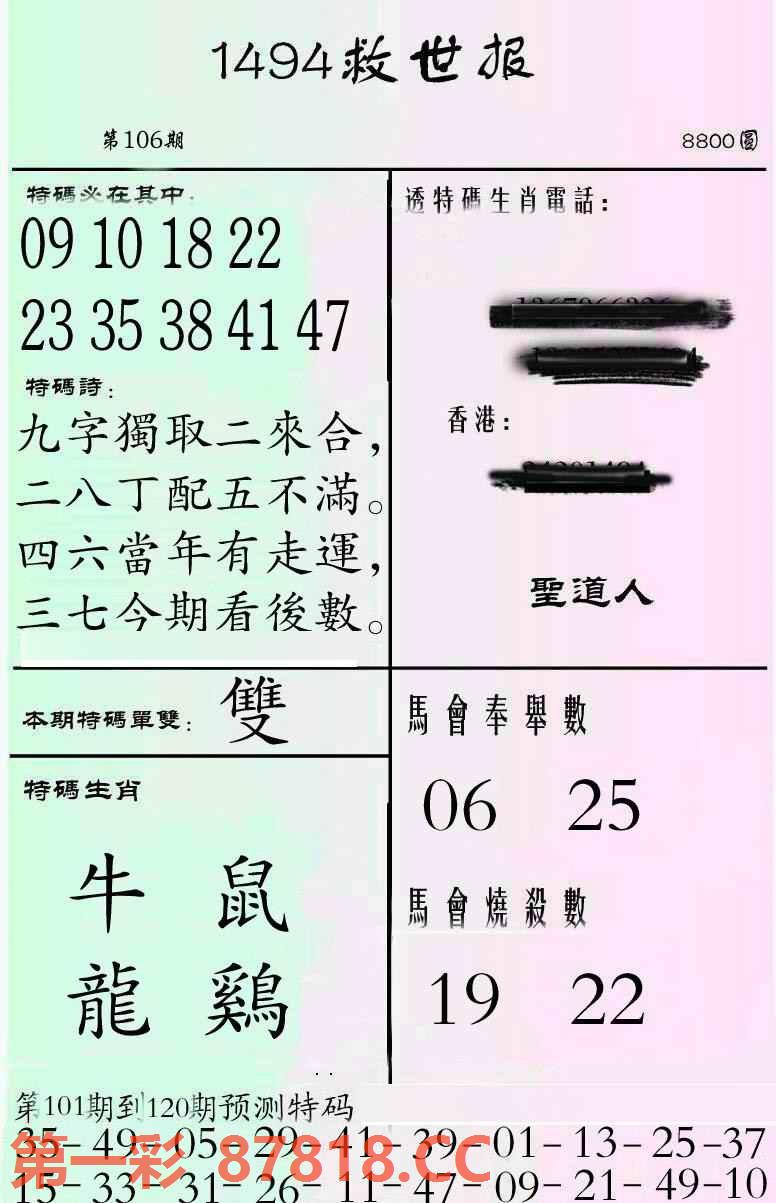 1494救世报
第106期
8800圓
特碼必在其中:
09 10 18 22
23 35 38 41 47
特碼詩:
九字獨取二來合,
二八丁配五不滿。
四六當年有走運,
三七今期看後數。
透特碼生肖電話:
香港:
聖道人
本期特碼單雙: 雙
特碼生肖
牛 鼠
龍 鷄
馬會奉舉數
06 25
馬會燒殺數
19 22
第101期到120期预测特码
35-49-05-29-41-39-01-13-25-37
第一彩 87818.CC
15-33-31-26-11-47-09-21-49-10